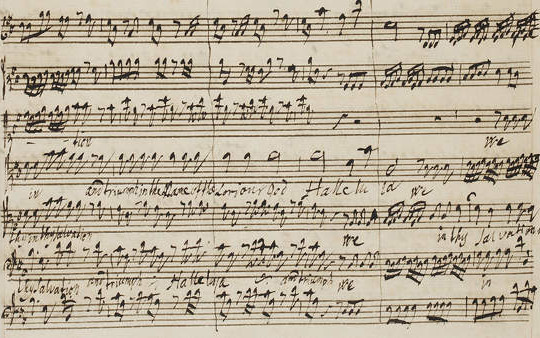 tion we
in and triumph in the Name of the Lord our God Hallelu ia we
thy Salvation we in thy Salvation
Salvation and triumph Halleluia and triumph we in